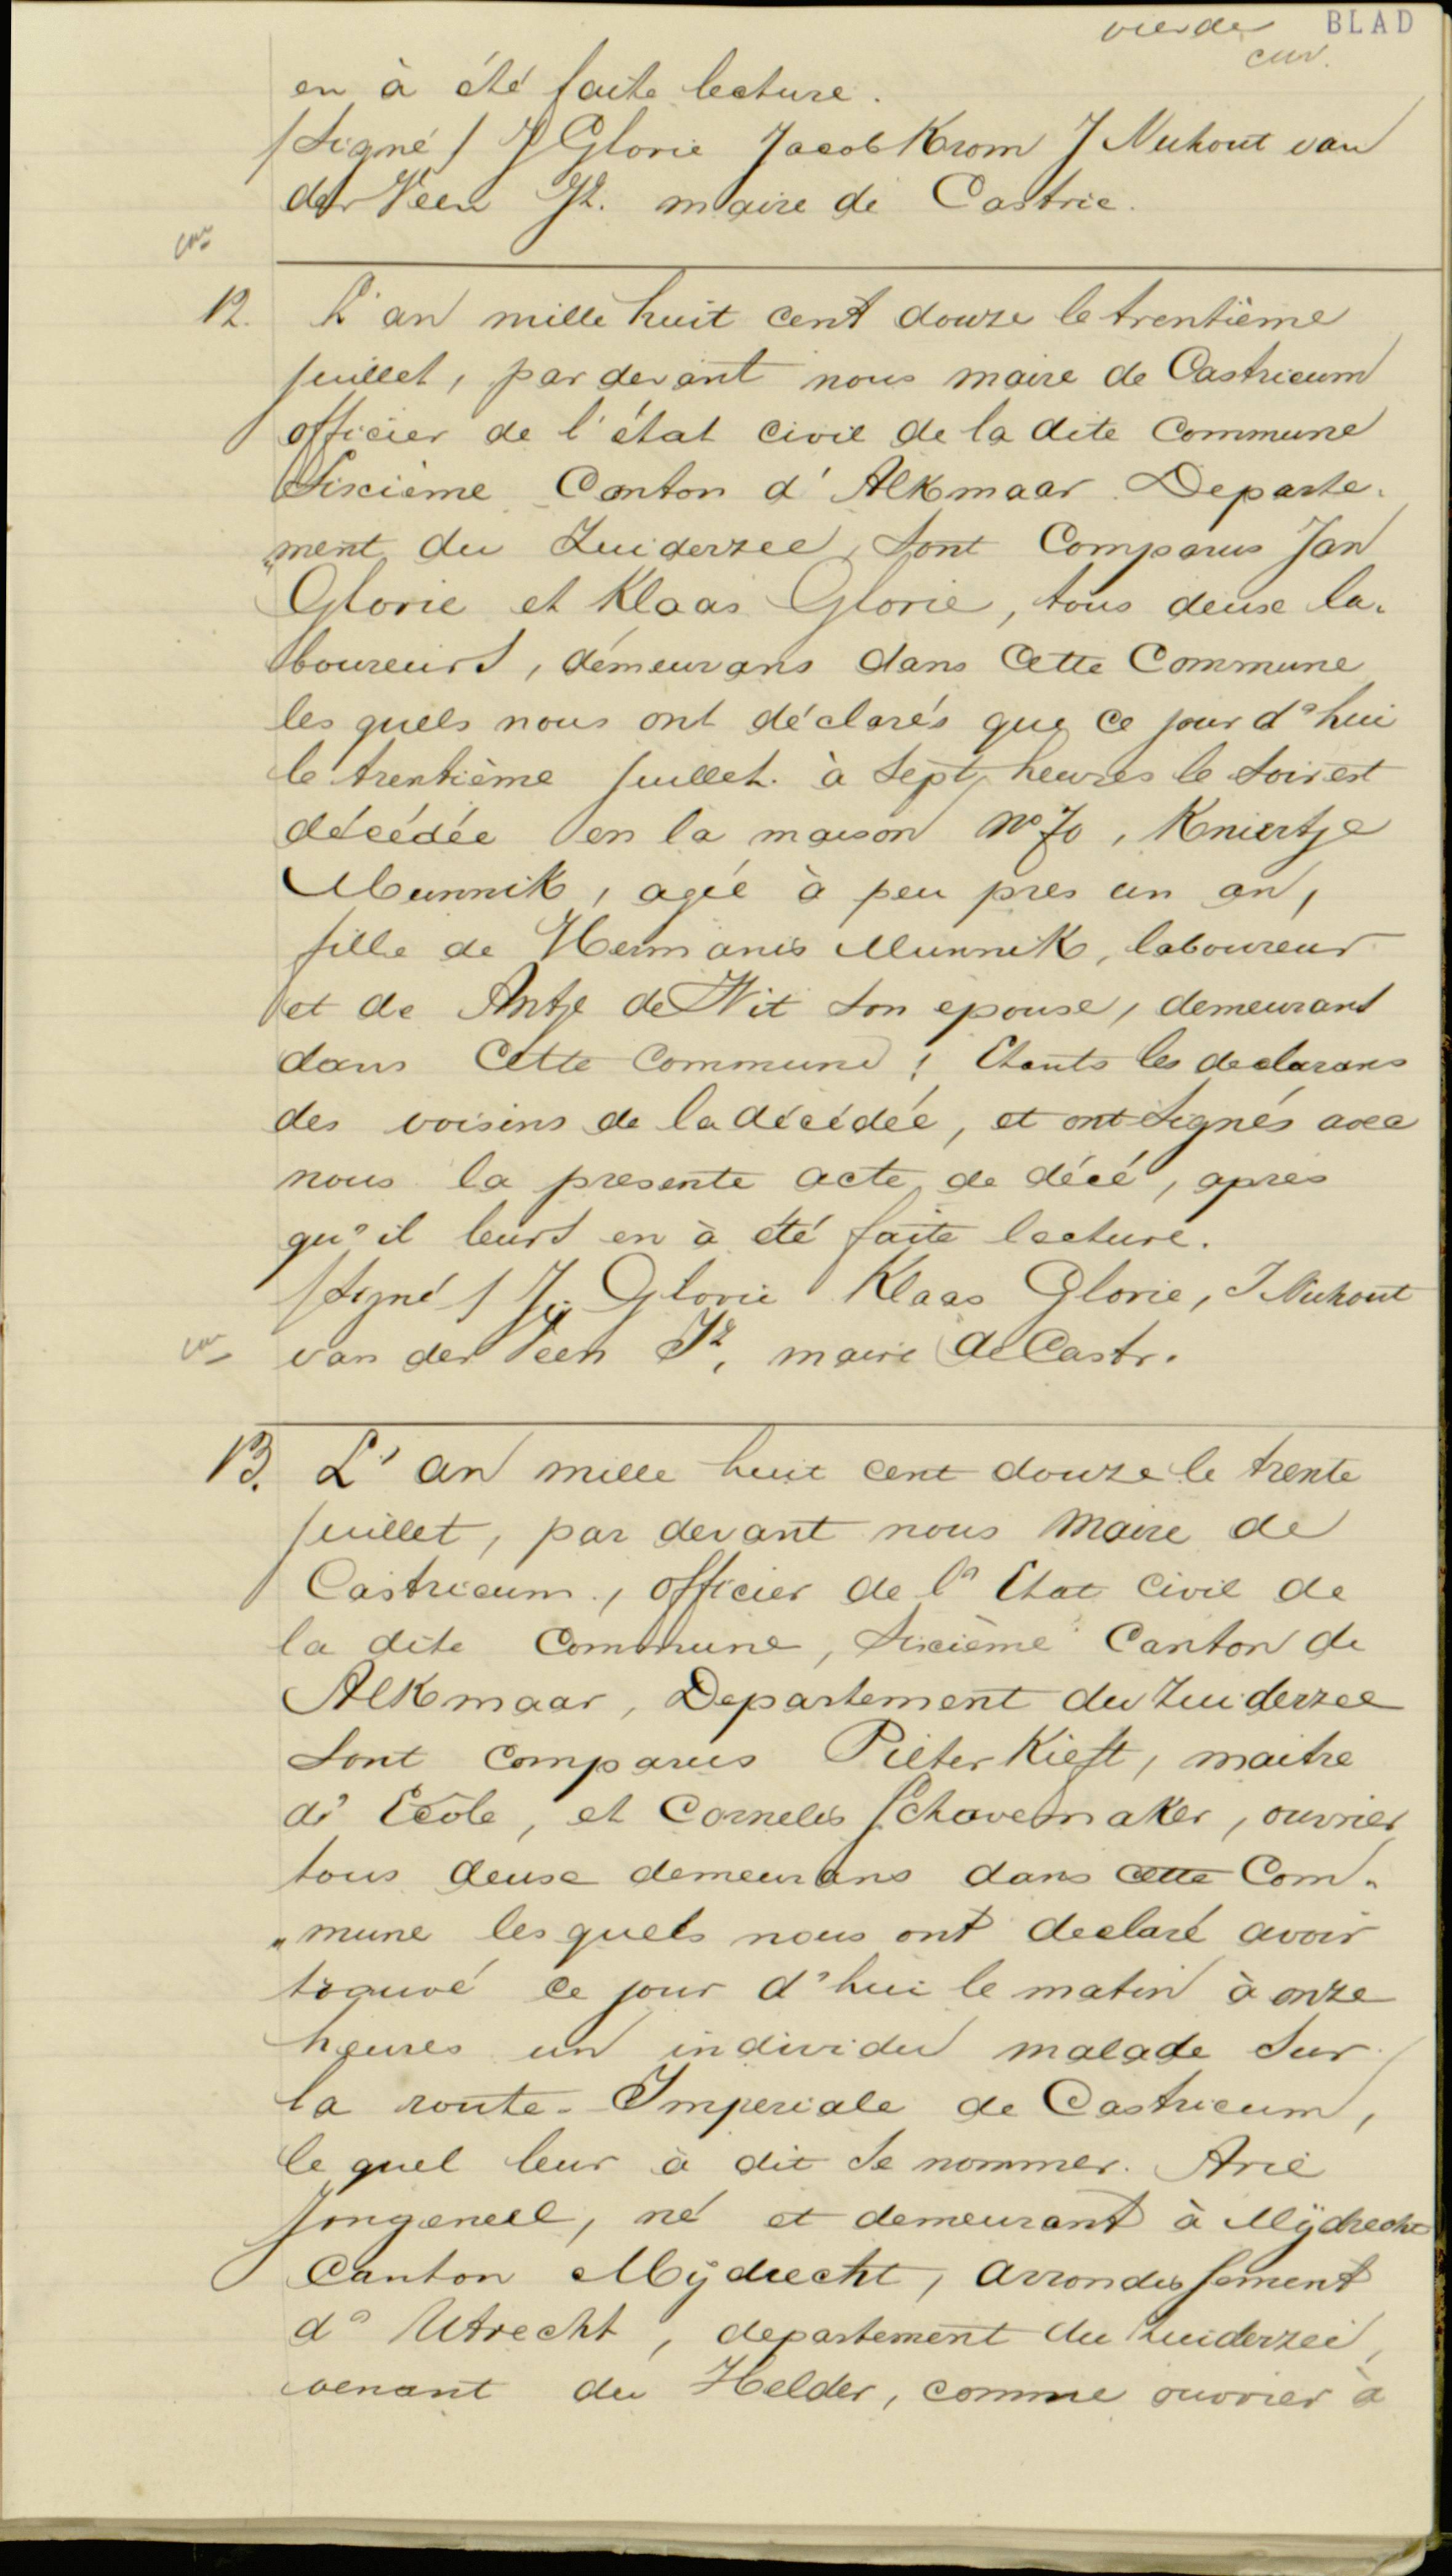 vierde BLAD
en à été faite lecture.
/Signé/ J Glorie Jacob Krom J Nuhout van
der Veen Jz. maire de Castric.
12. L'an mille huit cent douze le trentième
juillet, par devant nous maire de Castricum
officier de l'état civil de la dite Commune
Sixième Canton d'Alkmaar Departe„
„ment du Zuiderzee, Sont Comparus Jan
Glorie et Klaas Glorie, tous deuse la„
boureurs, démeurans dans Cette Commune
les quels nous ont déclarés que ce jour d'hui
le trentième juillet à Sept heures le Soir est
décédée en la maison No 70, Kniertje
Munnik, agée à peu pres un an,
fille de Hermanis Munnik, laboureur
et de Antje de Wit Son epouse, demeurant
dans Cette Commune; Etants les declarans
des voisins de la décédée, et ont Signés avec
nous la presente acte de décé, apres
qu'il leurs en à été faite lecture.
/Signé/ J. Glorie Klaas Glorie, J Nuhout
van der Veen Jz, maire de Castr.
13. L'an mille huit cent douze le trente
juillet, par devant nous Maire de
Castricum, officier de l'Etat Civil de
la dite Commune, Sixième Canton de
Alkmaar, Departement du Zuiderzee
Sont Comparus Pieter Kieft, maitre
d'Ecole, et Cornelis Schavemaker, ouvrier
tous deuse demeurans dans cette Com„
„mune les quels nous ont declaré avoir
trouvé ce jour d'hui le matin à onze
heures un individu malade Sur
la route Imperiale de Castricum,
le quel leur à dit Se nommer Arie
Jongeneel, né et demeurant à Mÿdrecht
Canton Mÿdrecht, Arrondissement
d'Utrecht, departement du Zuiderzee,
venant du Helder, comme ouvrier à